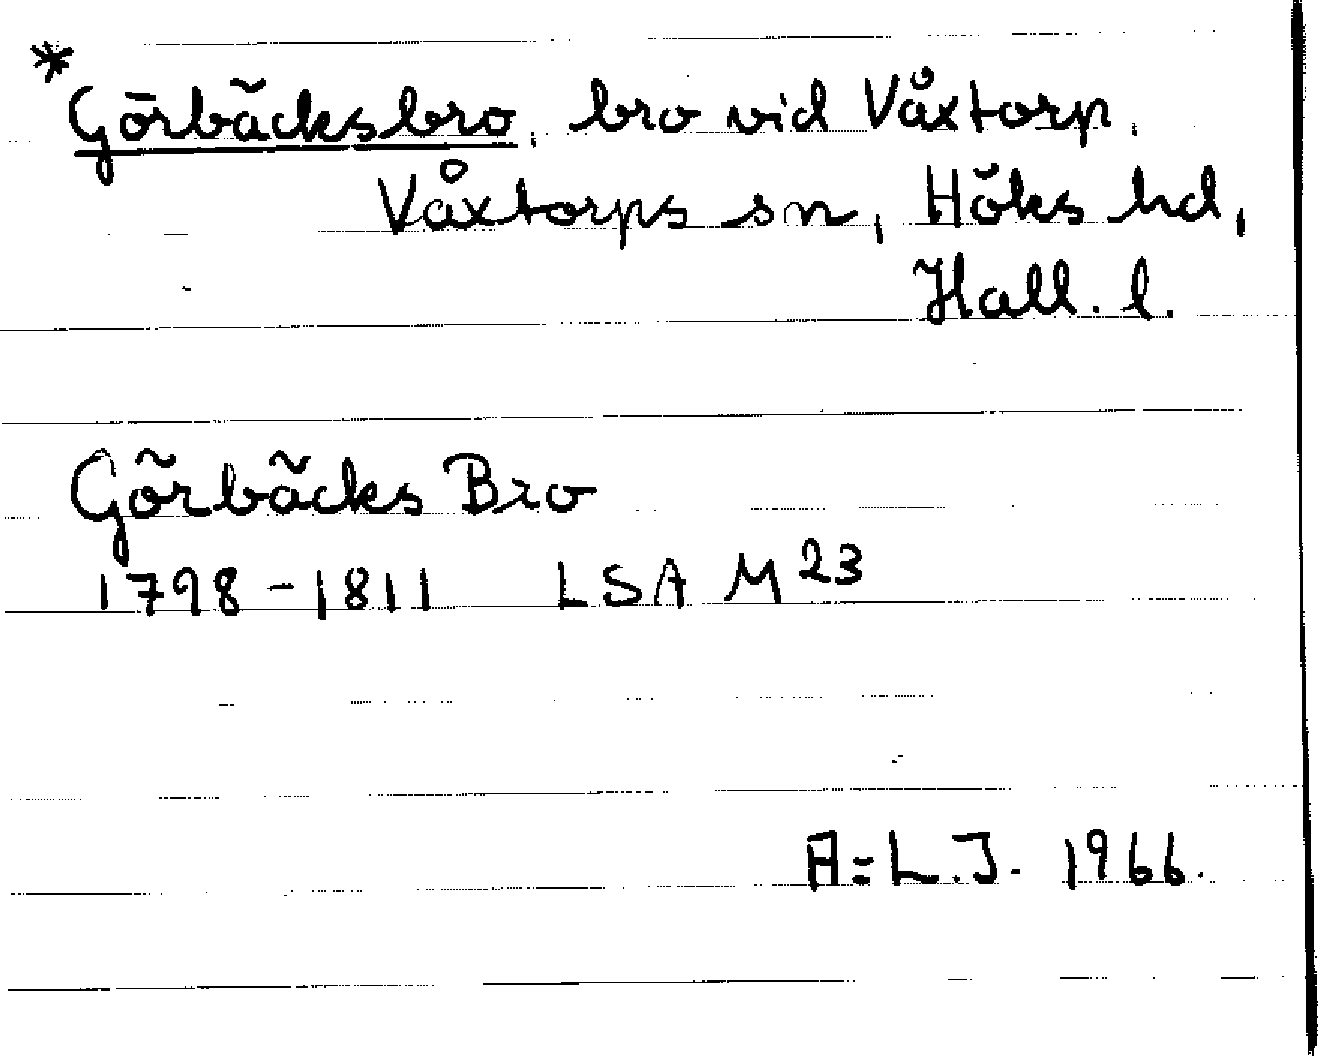 *
Görbäcksbro, bro vid Våxtorp,
Våxtorps sn, Höks hd,
Hall. l.
Görbäcks Bro
1798-1811 LSA M 23
A=L.J. 1966.